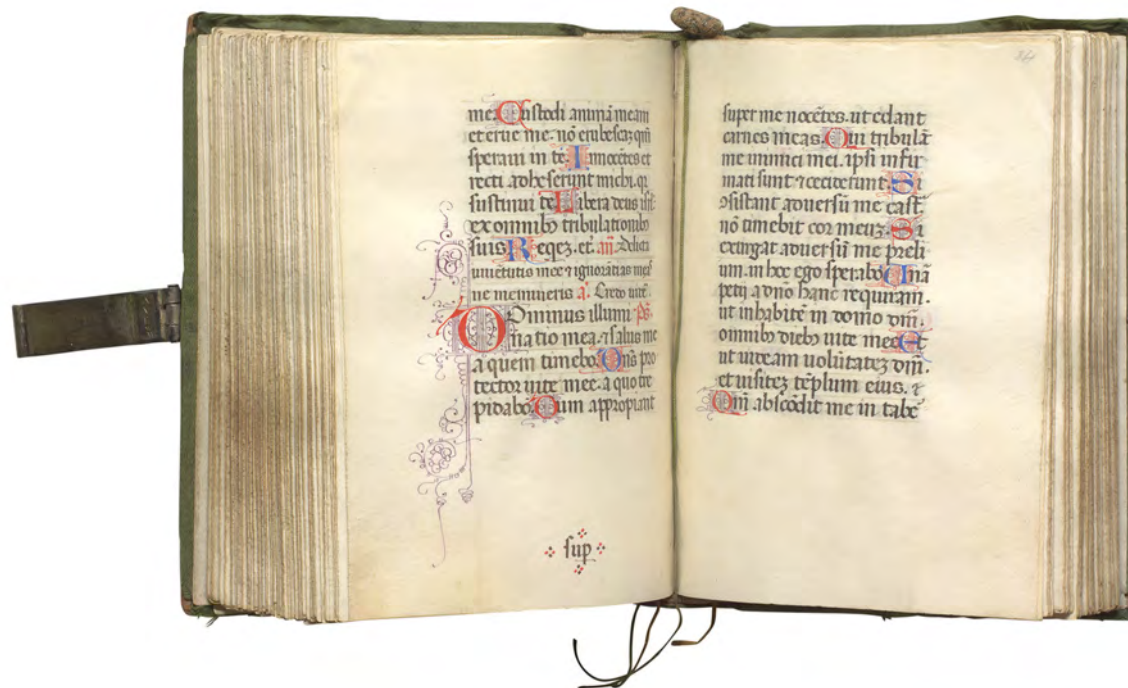 mea. Custodi animā meam
et erue me. nō erubescaȝ qm̄
speraui in te. Innocētes et
recti adheserunt michi. qr
sustinui te. Libera deus isrl
ex omnibꝫ tribulationibꝫ
suis. Reqeȝ. et. añ. Delicta
iuuētutis mee ⁊ ignorātias meas
ne memineris a. Credo uide
Dominus illumi ps.
natio mea. ⁊ salus mea
a quem timebo. Dns pro
tector uite mee. a quo tre
pidabo. Dum appropiant
sup
super me nocētes. ut edant
carnes meas. Qui tribulāt
me inimici mei. ipsi infir
mati sunt ⁊ ceciderunt. Si
ↄsistant aduersū me cast̄
nō timebit cor meuȝ. Si
exurgat aduersū me preli
um. in hoc ego sperabo. Unā
petij a dn̄o hanc requiram.
ut inhabitē in domo dnī.
omnibꝫ diebꝫ uite mee. Et
ut uideam uolūtateȝ dnī.
et uisiteȝ tēplum eius. ⁊
Qm̄ abscōdit me in tabe